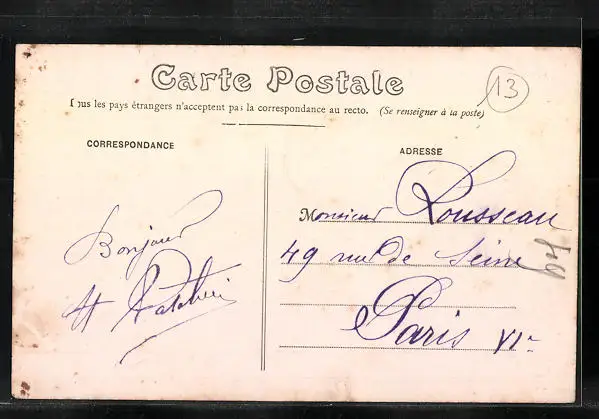 Carte Postale
Tous les pays étrangers n'acceptent pas la correspondance au recto. (Se renseigner à la poste)
13
CORRESPONDANCE
ADRESSE
Bonjour
H
Monsieur Rousseau
49 rue de Seine
Paris VIe